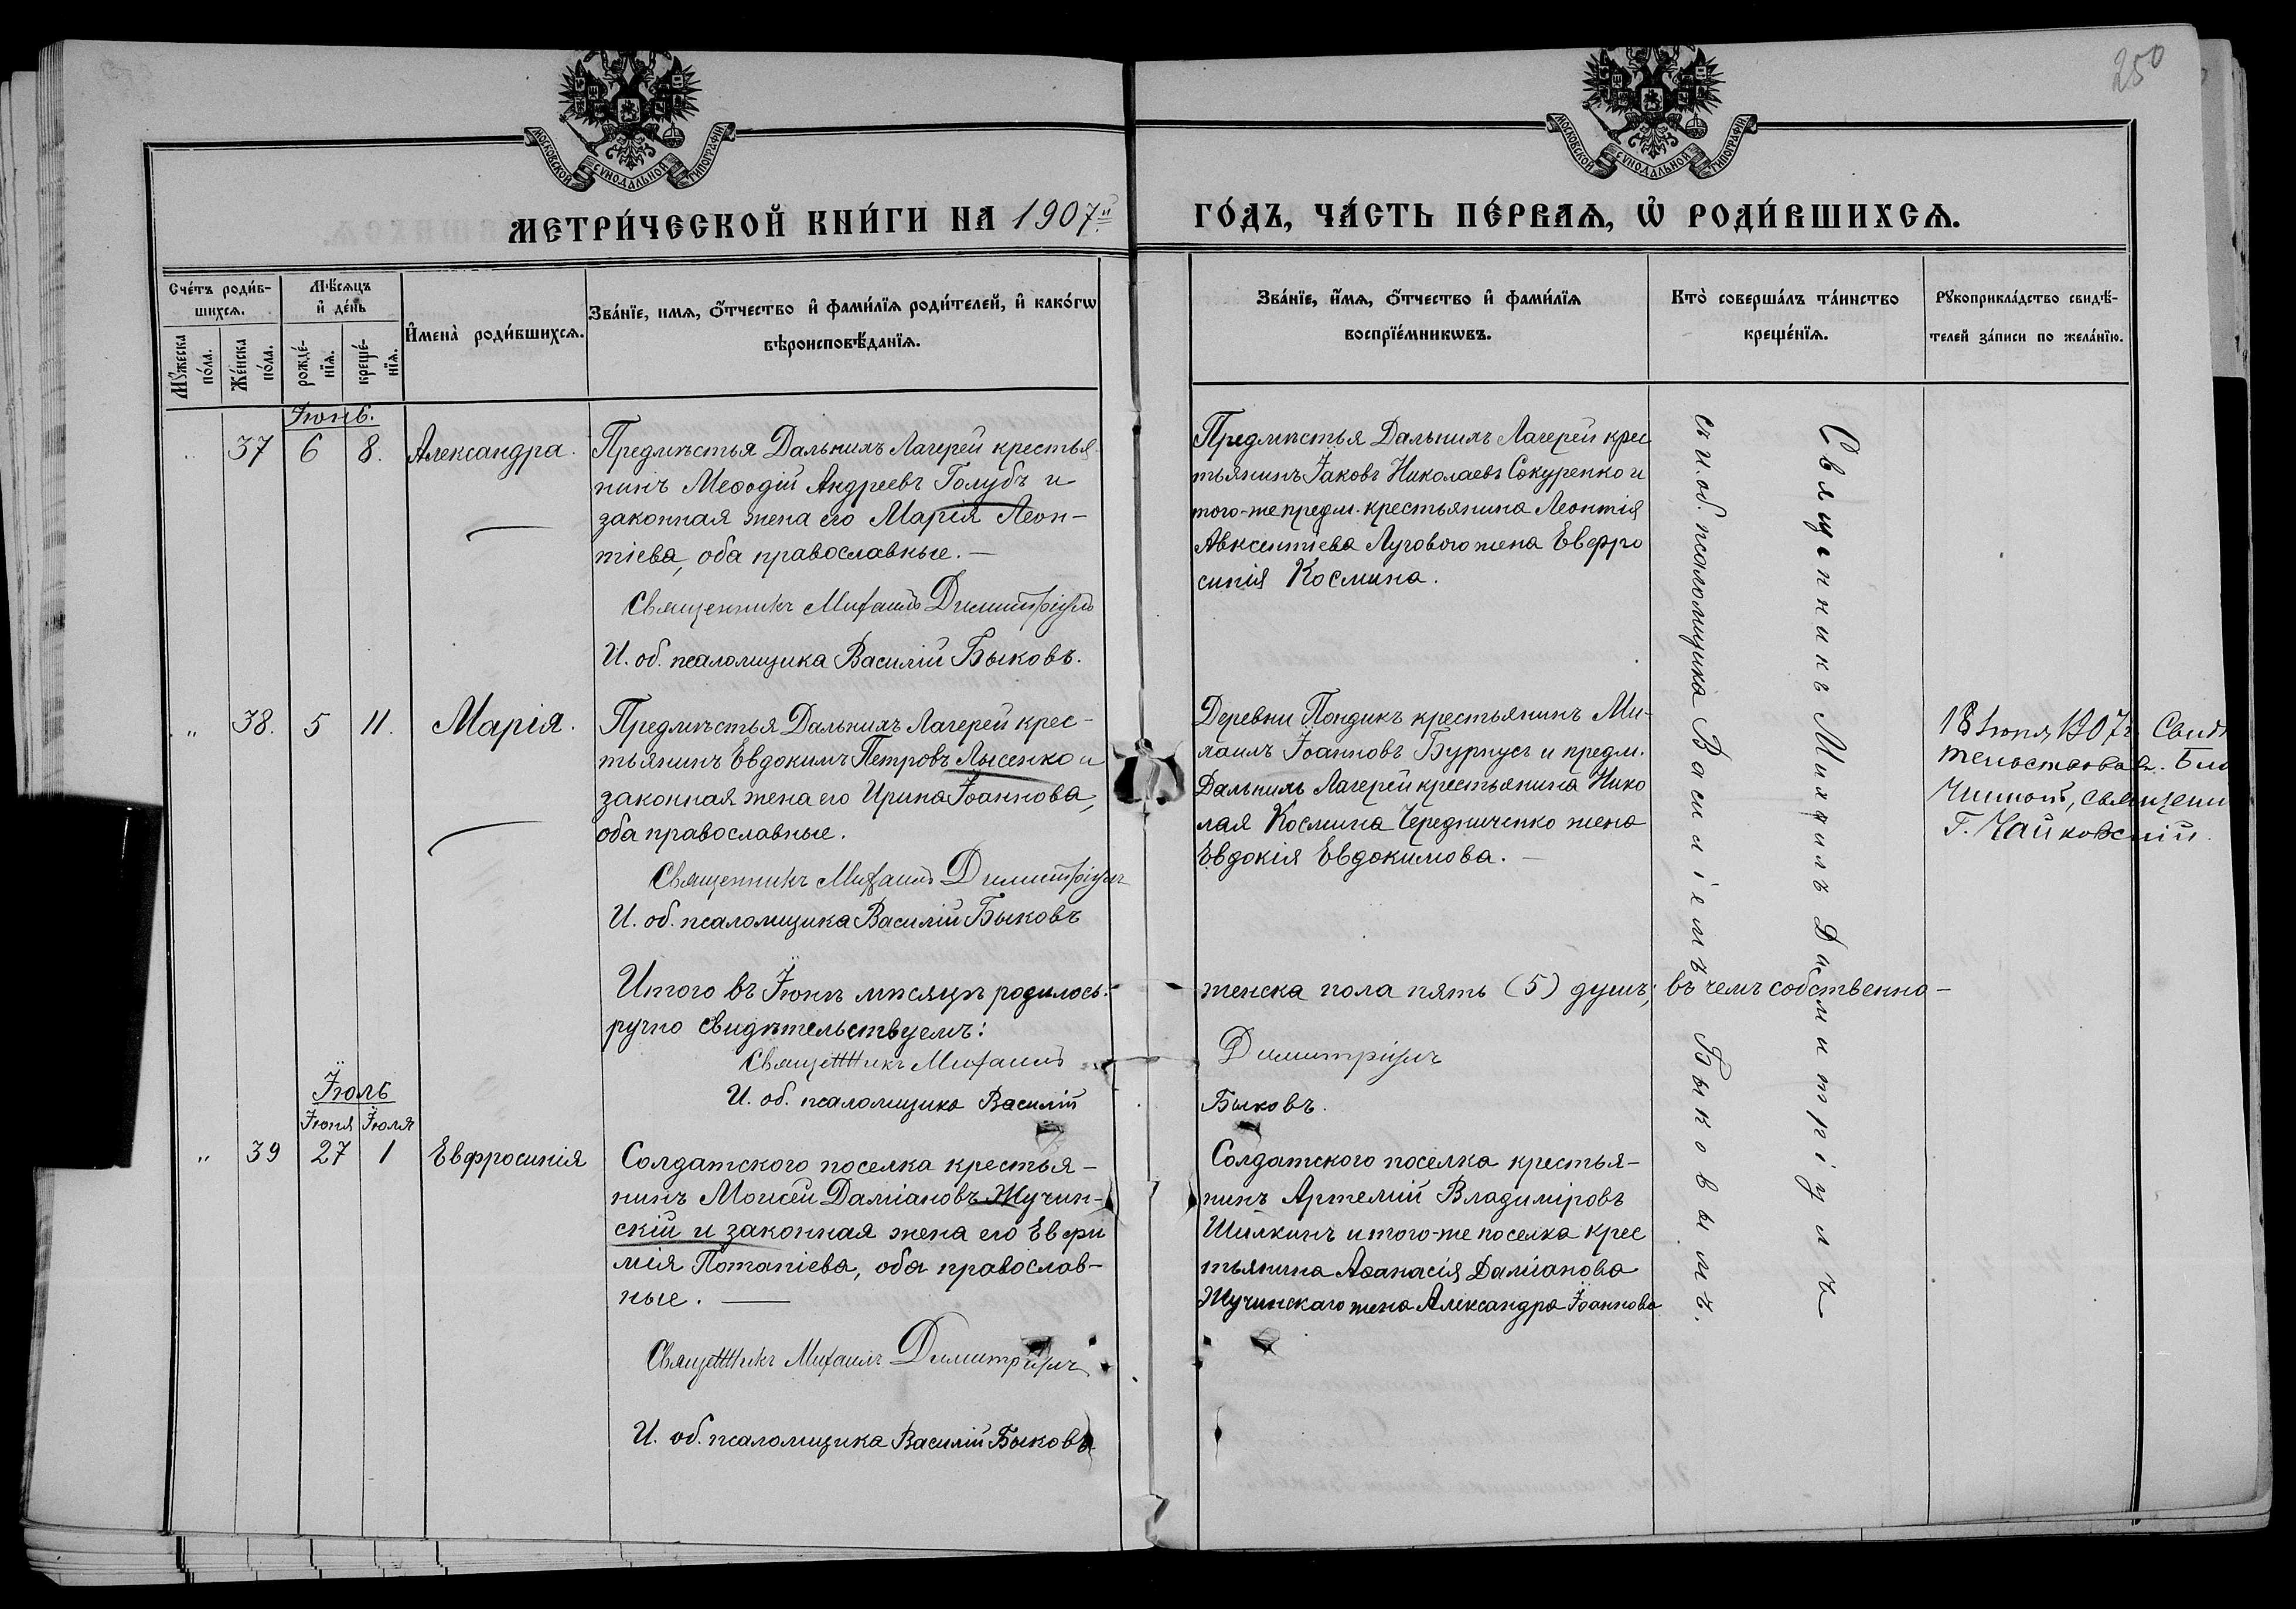 250
МОСКОВСКОЙ СѴНОДАЛЬНОЙ ТИПОГРАФІИ
МОСКОВСКОЙ СѴНОДАЛЬНОЙ ТИПОГРАФІИ
МЕТРИ́ЧЕСКОЙ КНИ́ГИ НА 1907й ГО́ДЪ, ЧА́СТЬ ПЕ́РВАѦ, Ѡ҆ РОДИ́ВШИХСѦ.
Сче́тъ роди́в-
шихсѧ.
Мꙋ́жеска по́ла.
Же́нска по́ла.
Мѣ́сѧцъ
и҆ де́нь
рожде́-
нїѧ.
креще́-
нїѧ.
И҆мена̀ роди́вшихсѧ.
Зва́нїе, имѧ, ѻ҆́тчество и҆ фами́лїѧ роди́телей, и҆ како́гѡ
вѣроисповѣ́данїѧ.
Зва́нїе, и҆́мѧ, ѻ҆́тчество и҆ фами́лїѧ
воспрїе́мникѡвъ.
Кто̀ соверша́лъ та́инство
креще́нїѧ.
Рꙋкоприкла́дство свидѣ́-
телей за́писи по жела́нїю.
Іюнь.
„ 37 6 8. Александра.
Предмѣстья Дальнихъ Лагерей крестья-
нинъ Меѳодій Андреевъ Голубъ и
законная жена его Марія Леон-
тіева, оба православные. —
Священникъ Михаилъ Димитріулъ
И. об. псаломщика Василій Быковъ.
Предмѣстья Дальнихъ Лагерей крес
тьянинъ Іаковъ Николаевъ Сокуренко и
того-же предм. крестьянина Леонтія
Авксентіева Лугового жена Евфро
синія Космина.
„ 38. 5 11. Марія.
Предмѣстья Дальнихъ Лагерей крес-
тьянинъ Евдокимъ Петровъ Лысенко и
законная жена его Ирина Іоаннова,
оба православные.
Священникъ Михаилъ Димитріулъ
И. об. псаломщика Василій Быковъ
Деревни Пондикъ крестьянинъ Ми-
хаилъ Іоанновъ Бурнусъ и предм.
Дальнихъ Лагерей крестьянина Нико
лая Космина Чередниченко жена
Евдокія Евдокимова. —
18 Іюня 1907 г. Свидѣ
тельствовалъ. Бла
чинный, священ
Г. Чайковскій.
Итого въ Іюнѣ мѣсяцѣ родилось - женска пола пять (5) душъ; въ чемъ собственно-
ручно свидѣтельствуемъ:
Священникъ Михаилъ Димитріулъ
И. об. псаломщика Василій Быковъ.
Іюль
Іюня Іюля
„ 39 27 1 Евфросинія
Солдатского поселка крестья-
нинъ Моисей Даміановъ Жучин-
скій и законная жена его Евфи
мія Потапіева, оба православ-
ные. —
Священникъ Михаилъ Димитріулъ
И. об. псаломщика Василій Быковъ
Солдатского поселка крестья-
нинъ Артемій Владиміровъ
Шилкинъ и того-же поселка крес
тьянина Аѳанасія Даміанова
Жучинскаго жена Александра Іоаннова
Священникъ Михаилъ Димитріулъ
съ и. об. псаломщика Василіемъ Быковымъ.